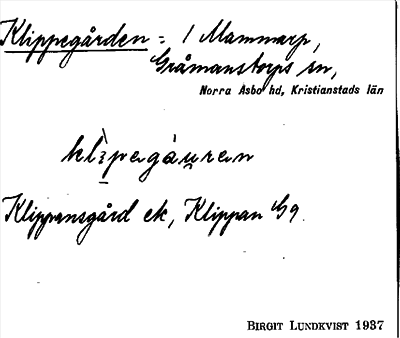 Klippegården = 1 Mammarp,
Gråmanstorps sn,
Norra Åsbo hd, Kristianstads län
Klippansgård ek, Klippan G9.
BIRGIT LUNDKVIST 1937